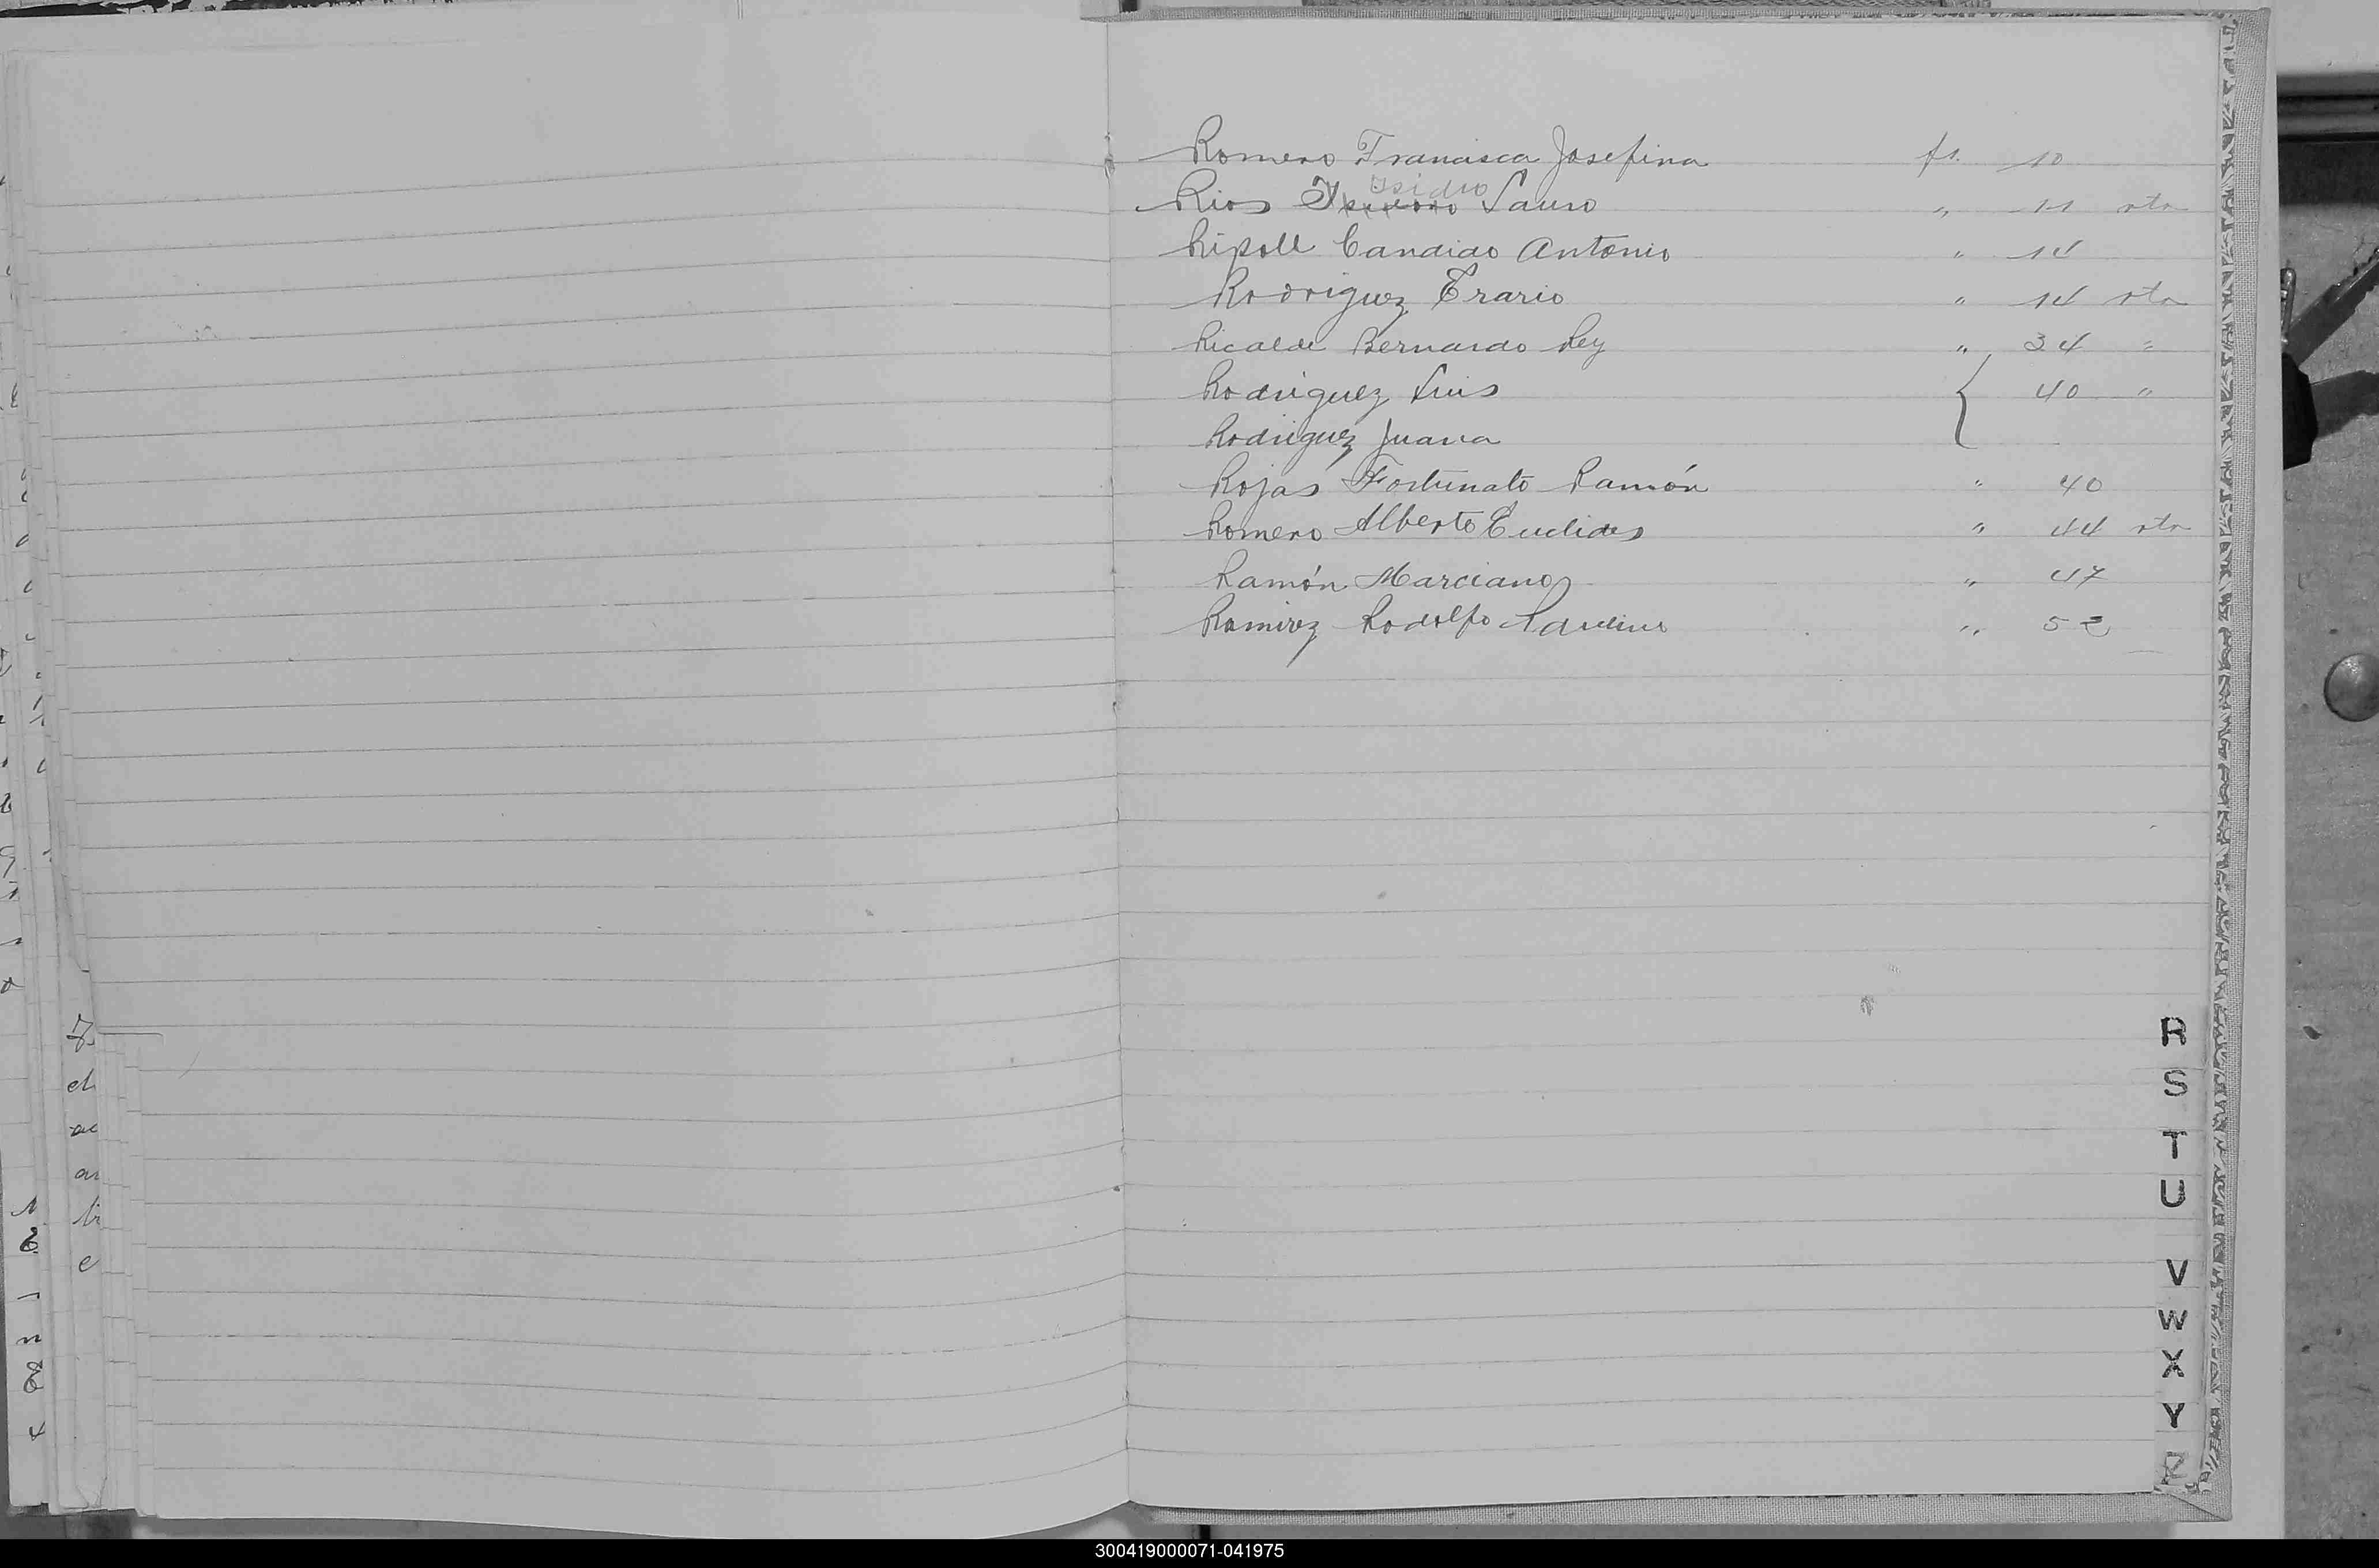 Romero Francisca Josefina fs. 10
Isidro
Rios Lauro " 11 vta
Ripoll Candido Antonio " 14
Rodriguez Erario " 14 vta
Ricalde Bernardo Rey " 34 "
Rodriguez Luis { 40 "
Rodriguez Juana
Rojas Fortunato Ramón " 40
Romero Alberto Euclides " 44 vta
Ramón Marciano " 47
Ramirez Rodolfo " 52
R
S
T
U
V
W
X
Y
Z
300419000071-041975